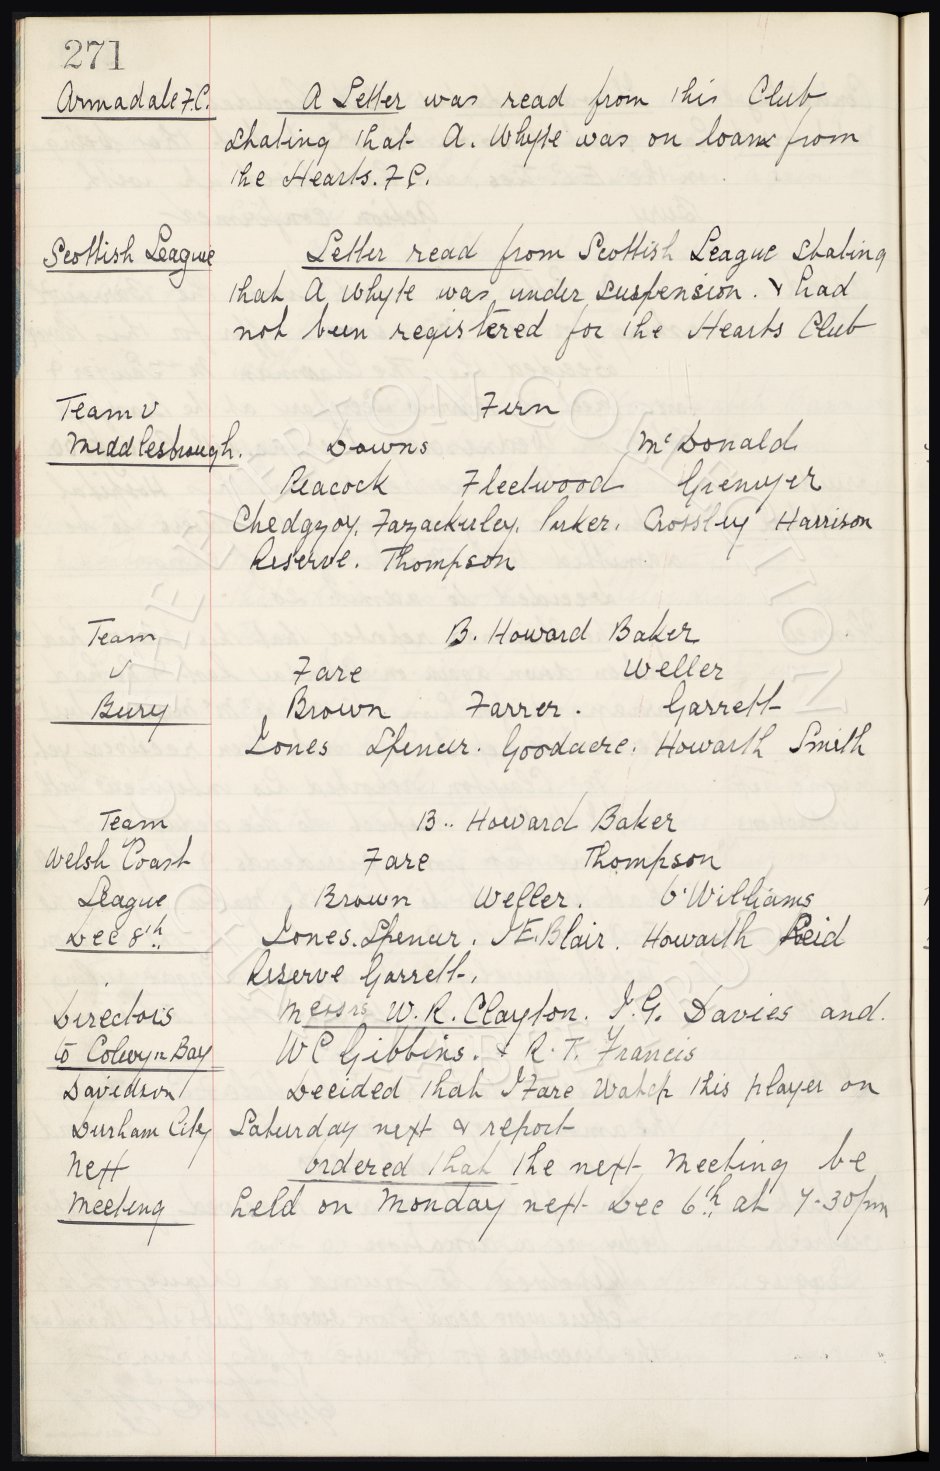 271
Armadale F.C. A Letter was read from this Club
stating that A. Whyte was on loan from
the Hearts. F C.
Scottish League Letter read from Scottish League stating
that A Whyte was under suspension. & had
not been registered for the Hearts Club
Team v Fern
Middlesbrough. Downs McDonald
Peacock Fleetwood Grenyer
Chedgzoy. Fazackerley. Parker. Crossley Harrison
Reserve. Thompson
Team B. Howard Baker
v Fare Weller
Bury Brown Farrer. Garrett
Jones Spencer. Goodacre. Howarth Smith
Team B.. Howard Baker
Welsh Coast Fare Thompson
League Brown Weller. Williams
Dec 8th. Jones. Spencer. J E. Blair. Howarth Reid
Reserve Garrett.
Directors Messrs W. R. Clayton. J. G. Davies and.
to Colwyn Bay W C Gibbins. & R. T. Francis
Davidson Decided that J Fare Watch this player on
Durham City Saturday next & report
Next Ordered that the next Meeting be
Meeting held on Monday next Dec 6th. at 7-30pm